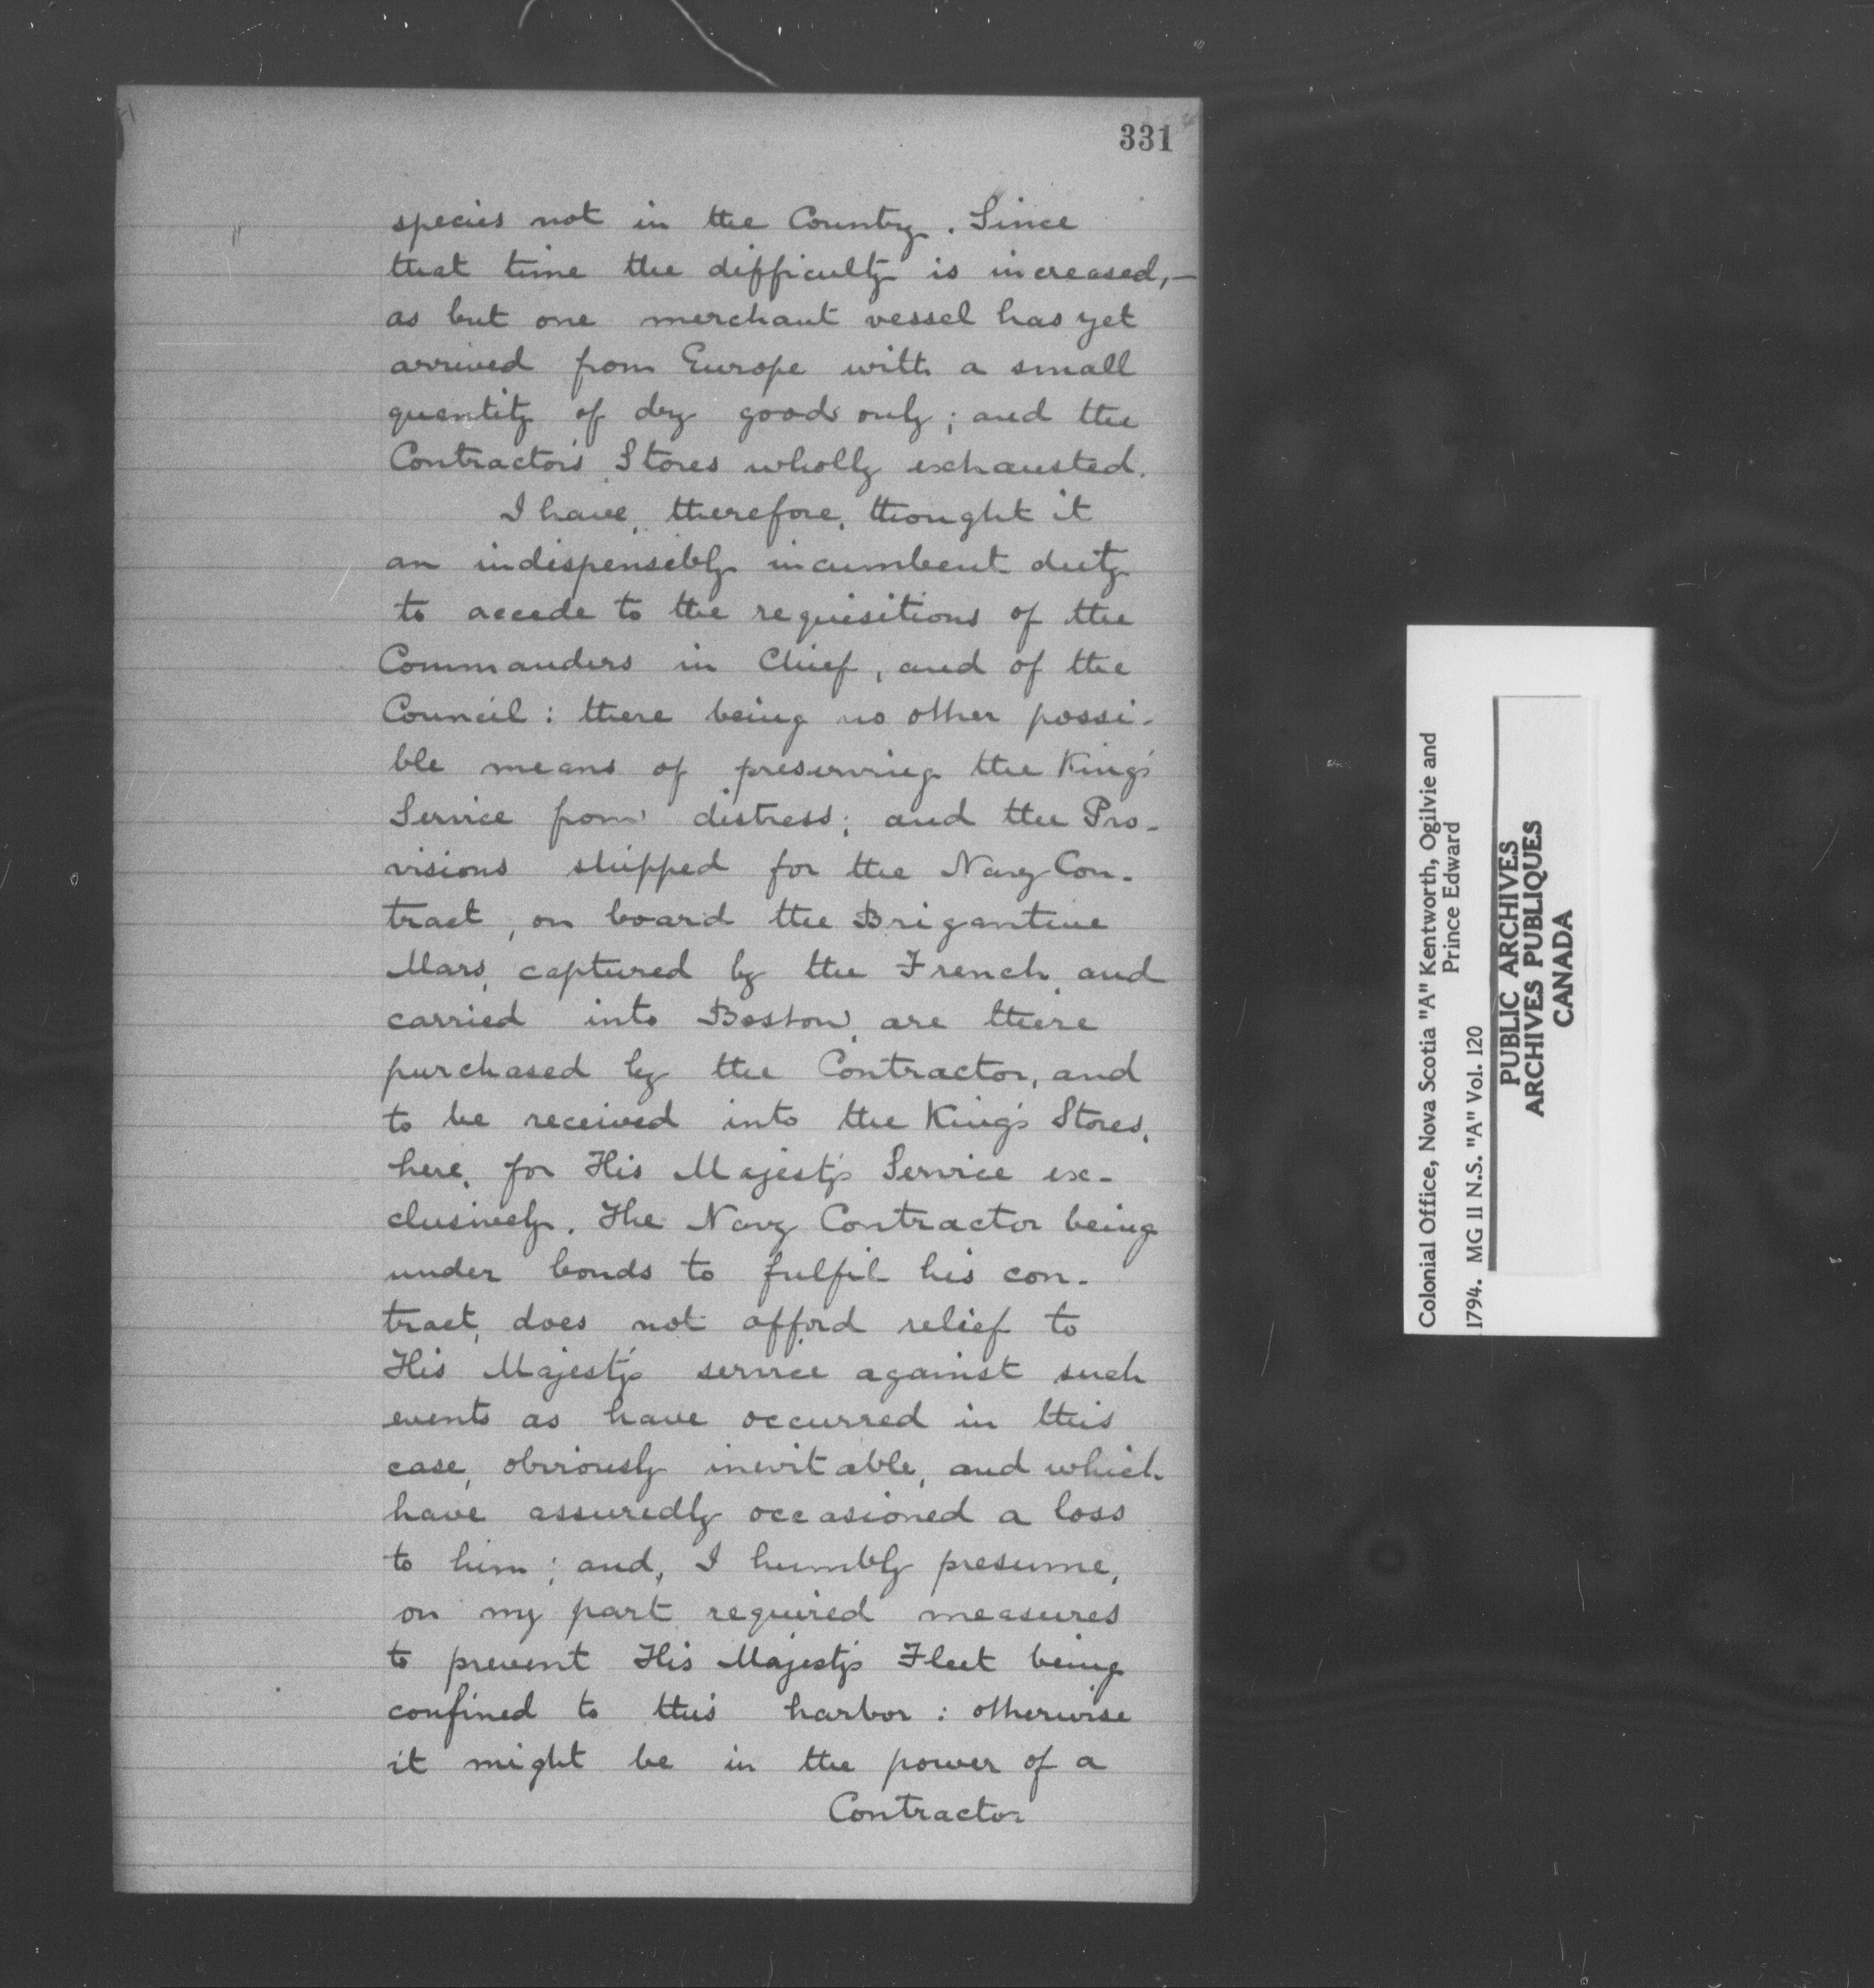 331
species not in the Country. Since
that time the difficulty is increased,—
as but one merchant vessel has yet
arrived from Europe with a small
quantity of dry goods only; and the
Contractor's Stores wholly exhausted.
I have, therefore, thought it
an indispensibly incumbent duty
to accede to the requisitions of the
Commanders in Chief, and of the
Council: there being no other possi-
ble means of preserving the King's
Service from distress; and the Pro-
visions shipped for the Navy Con-
tract, on board the Brigantine
Mars, captured by the French, and
carried into Boston, are there
purchased by the Contractor, and
to be received into the King's Stores,
here, for His Majesty's Service ex-
clusively. The Navy Contractor being
under bonds to fulfil his con-
tract, does not afford relief to
His Majesty's service against such
events as have occurred in this
case, obviously inevitable, and which
have assuredly occasioned a loss
to him; and, I humbly presume,
on my part required measures
to prevent His Majesty's Fleet being
confined to this harbor: otherwise
it might be in the power of a
Contractor
Colonial Office, Nova Scotia "A" Kentworth, Ogilvie and
Prince Edward
1794. MG 11 N.S. "A" Vol. 120
PUBLIC ARCHIVES
ARCHIVES PUBLIQUES
CANADA